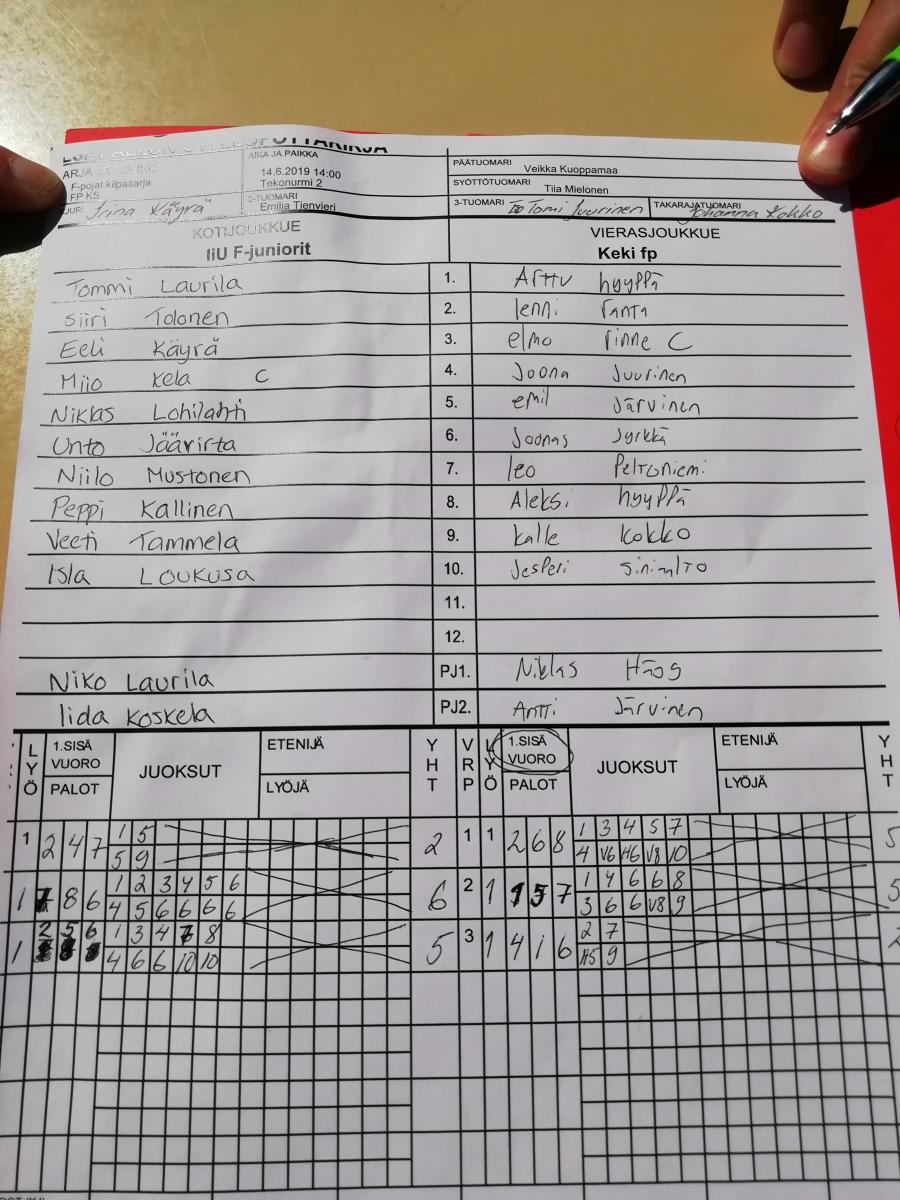 AIKA JA PAIKKA
F-pojat kilpasarja
FP KS
14.6.2019 14:00
Tekonurmi 2
PÄÄTUOMARI Veikka Kuoppamaa
SYÖTTÖTUOMARI Tiia Mielonen
Irina Käyrä
2-TUOMARI Emilia Tienvieri
3-TUOMARI Tomi Juurinen TAKARAJATUOMARI Johanna Kokko
KOTIJOUKKUE VIERASJOUKKUE
IiU F-juniorit Keki fp
Tommi Laurila 1. Arttu hyyppä
Siiri Tolonen 2. lenni ranta
Eeli Käyrä 3. elmo rinne C
Miio Kela C 4. Joona Juurinen
Niklas Lohilahti 5. emil Järvinen
Unto Jäävirta 6. Joonas Jyrkkä
Niilo Mustonen 7. leo Peltoniemi
Peppi Kallinen 8. Aleksi hyyppä
Veeti Tammela 9. kalle kokko
Isla Loukusa 10. Jesperi
11.
12.
Niko Laurila PJ1. Niklas Hägg
Iida Koskela PJ2. Antti Järvinen
LYÖ 1.SISÄ VUORO PALOT JUOKSUT ETENIJÄ LYÖJÄ YHT VRP LYÖ 1.SISÄ VUORO PALOT JUOKSUT ETENIJÄ LYÖJÄ YHT
1 2 4 7 1 5 2 1 1 2 6 8 1 3 4 5 7 5
5 9 4 V6 H6 V8 10
1 8 6 1 2 3 4 5 6 6 2 1 1 5 7 1 4 6 6 8 5
4 5 6 6 6 6 3 6 6 V8 9
1 2 5 6 1 3 4 7 8 5 3 1 4 1 6 2 7 2
4 6 6 10 10 H5 9